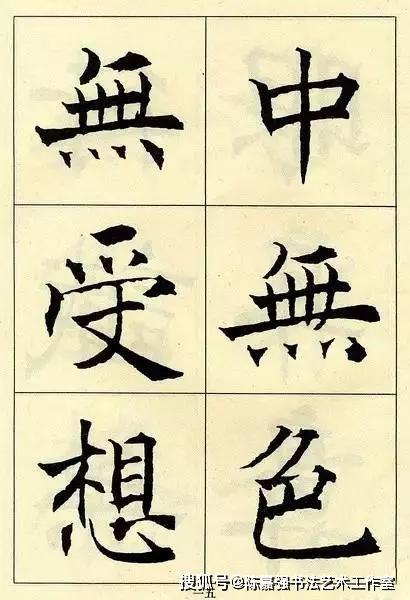 中無色
無受想
搜狐号@陈嘉强书法艺术工作室
一五